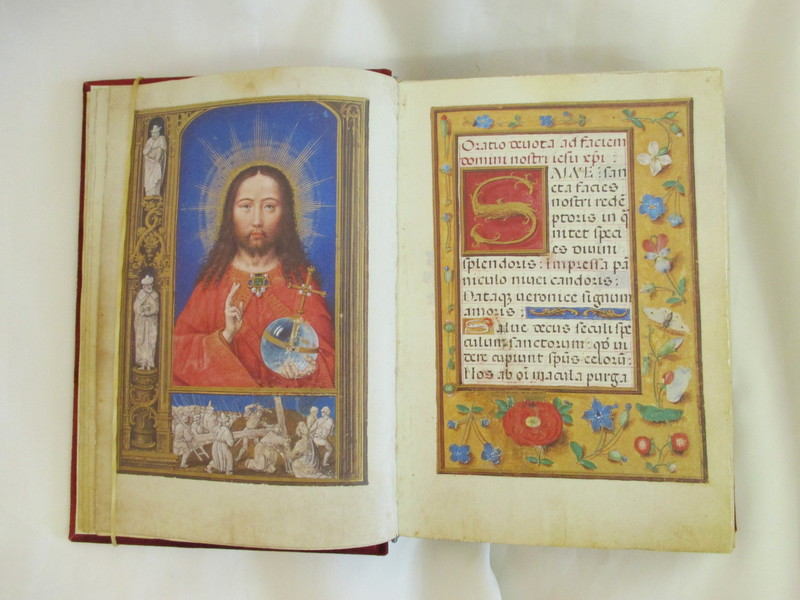 Oratio devota ad faciem
domini nostri iesu xp̄i:
SALVE: san
cta facies
nostri redē
ptoris in q̄
nitet speci
es divini
splendoris: Impressa pā
niculo nivei candoris:
Dataq̄ veronice signum
amoris:
Salve decus seculi spe
culum sanctorum: qd̄ vi
dere cupiunt spūs celorū:
Nos ab oī macula purga